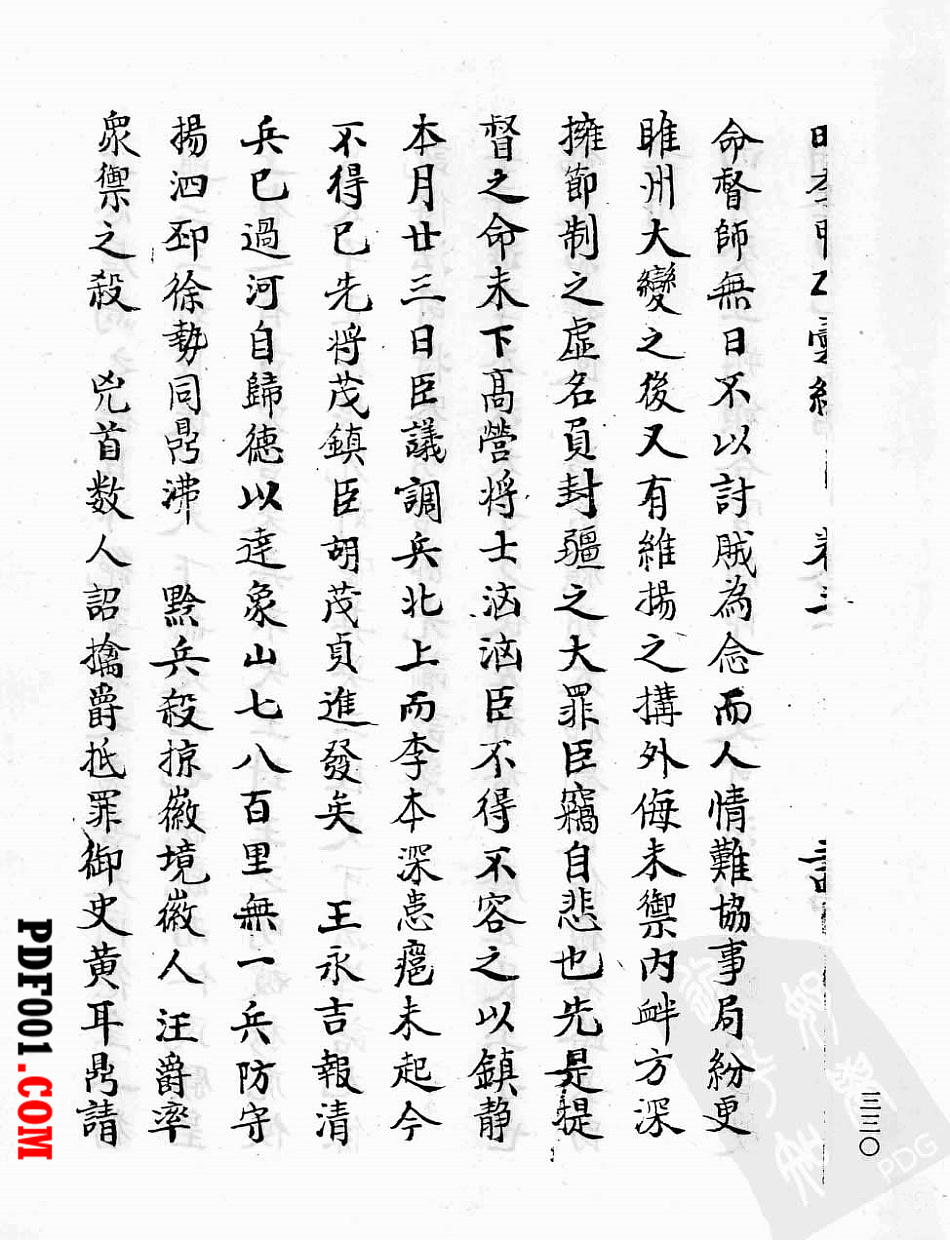 命督師無日不以討賊為念而人情難協事局紛更
睢州大變之後又有維揚之搆外侮未禦内衅方深
擁節制之虛名負封疆之大罪臣竊自悲也先是提
督之命未下髙營將士汹汹臣不得不容之以鎮靜
本月廿三日臣議調兵北上而李本深患瘧未起今
不得已先將茂鎮臣胡茂貞進發矣 王永吉報清
兵已過河自歸德以達象山七八百里無一兵防守
揚泗邳徐勢同鼎沸 黔兵殺掠徽境徽人汪爵率
衆禦之殺 兇首数人詔擒爵抵罪御史黄耳鼎請
三三〇
PDF001.COM
PDG